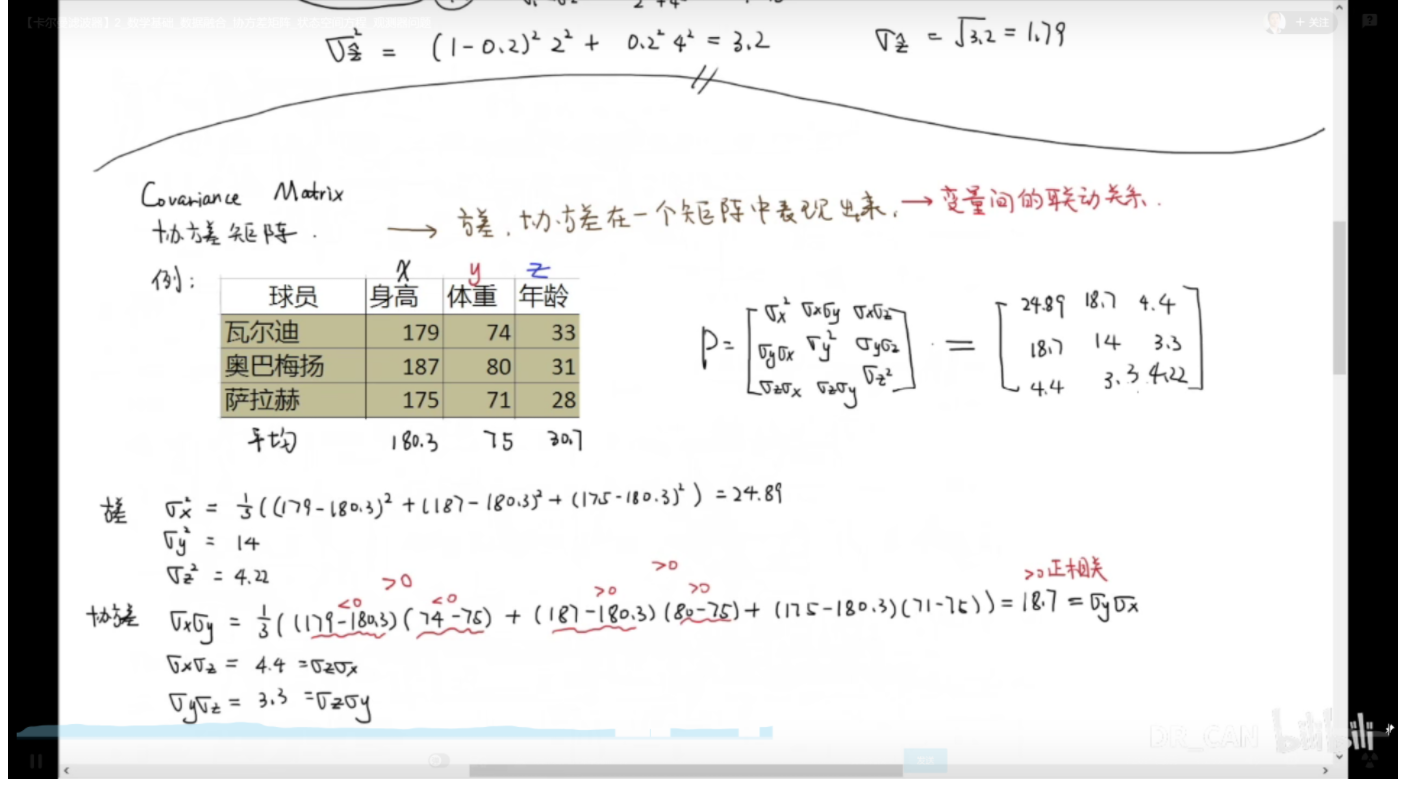 【卡尔曼滤波器】2_数学基础_数据融合_协方差矩阵_状态空间方程_观测器问题
+ 关注
σ²_ẑ = (1-0.2)² 2² + 0.2² 4² = 3.2 σ_ẑ = √3.2 = 1.79
Covariance Matrix
协方差矩阵. → 方差, 协方差在一个矩阵中表现出来, → 变量间的联动关系.
例:
x y z
球员 身高 体重 年龄
瓦尔迪 179 74 33
奥巴梅扬 187 80 31
萨拉赫 175 71 28
平均 180.3 75 30.7
P = [σx² σxσy σxσz = [24.89 18.7 4.4
σyσx σy² σyσz 18.7 14 3.3
σzσx σzσy σz²] 4.4 3.3 4.22]
方差 σx² = 1/3 ((179-180.3)² + (187-180.3)² + (175-180.3)²) = 24.89
σy² = 14
σz² = 4.22
>0 >0 >0正相关
<0 <0 >0 >0
协方差 σxσy = 1/3 ((179-180.3)(74-75) + (187-180.3)(80-75) + (175-180.3)(71-75)) = 18.7 = σyσx
σxσz = 4.4 = σzσx
σyσz = 3.3 = σzσy
DR_CAN bilibili